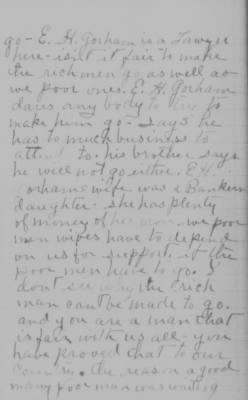 go - E. H. Gorham is a Lawyer
here - isn't it fair to make
the rich men go as well as
we poor ones. E. H. Gorham
dares any body to try to
make him go - says he
has to much business to
attend to. his brother says
he will not go either. E H.
Gorhams wife was a Bankers
daughter - she has plenty
of money of her own - we poor
men wifes have to depend
on us for support, if the
poor men have to go. I
dont see why the rich
man cant be made to go.
and you are a man that
is fair with us all - you
have proved that to our
Country. the reason a good
many poor man was waiting